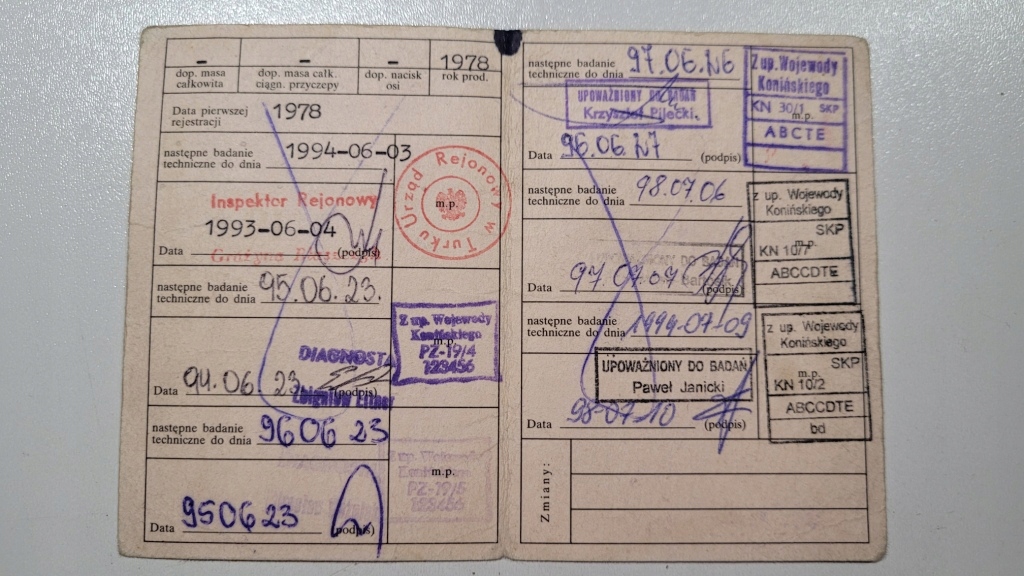 - - - 1978
dop. masa całkowita dop. masa całk. ciągn. przyczepy dop. nacisk osi rok prod.
Data pierwszej rejestracji 1978
następne badanie
techniczne do dnia 1994-06-03
Urząd Rejonowy w Turku
m.p.
Inspektor Rejonowy
1993-06-04
Data (podpis)
Grażyna
następne badanie
techniczne do dnia 95.06.23.
Z up. Wojewody
Konińskiego
m.p.
PZ-19/4
123456
DIAGNOSTA
Data 94.06 23 (podpis)
Zbigniew
następne badanie
techniczne do dnia 96 06 23
Z up. Wojewody
Konińskiego
m.p.
PZ-19/5
123456
Data 95 06 23 (podpis)
następne badanie
techniczne do dnia 97.06.
UPOWAŻNIONY DO BADAŃ
Krzysztof Pilecki
Data 96.06. (podpis)
Z up. Wojewody
Konińskiego
KN 30/1 SKP
m.p.
ABCTE
następne badanie
techniczne do dnia 98.07.06
UPOWAŻNIONY DO BADAŃ
Data 97.07.07 (podpis)
z up. Wojewody
Konińskiego
SKP
m.p.
KN 10/7
ABCCDTE
następne badanie
techniczne do dnia 1999-07-09
UPOWAŻNIONY DO BADAŃ
Paweł Janicki
Data 98-07-10 (podpis)
z up. Wojewody
Konińskiego
SKP
m.p.
KN 10/2
ABCCDTE
bd
Zmiany: